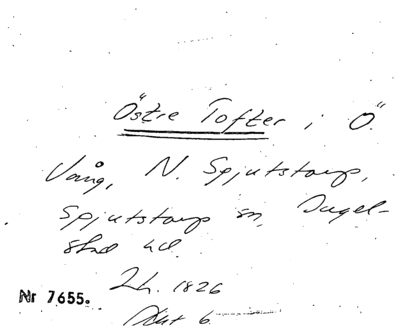 Östre Tofter i Ö.
Vång, N. Spjutstorp,
Spjutstorp sn, Ingel-
stad hd.
Lh. 1826
Nr 7655.
Akt 6.